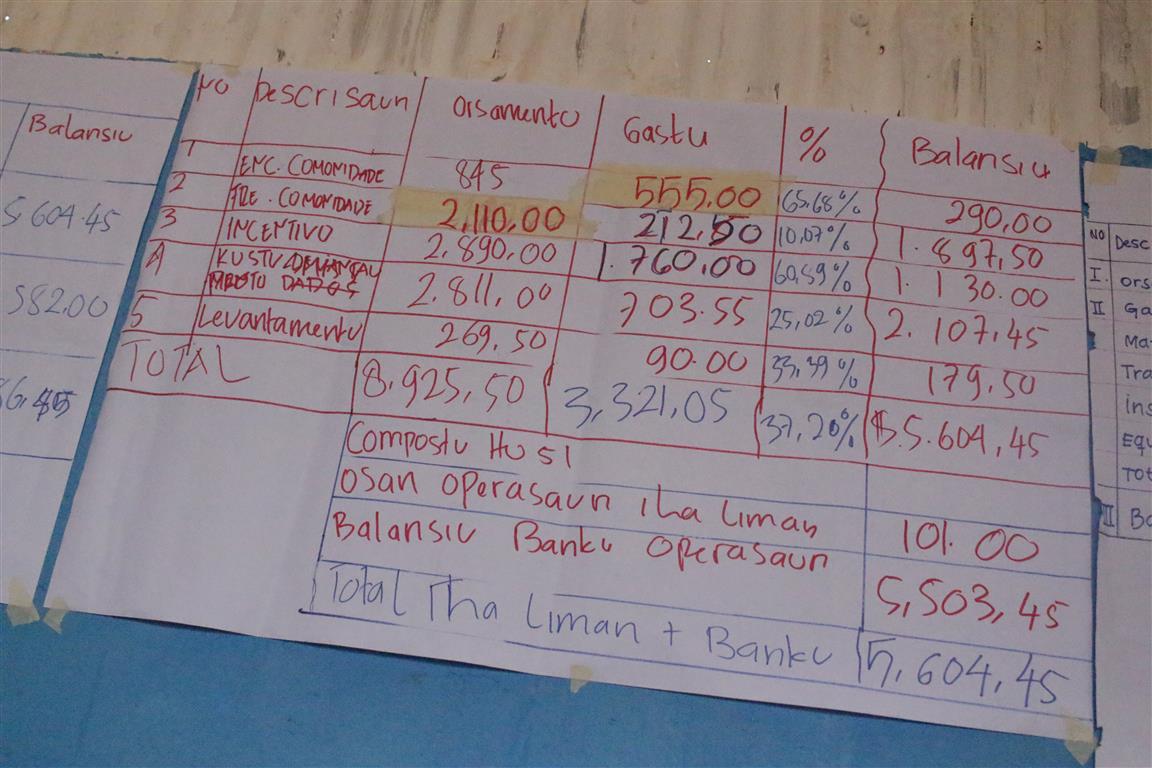 Balansiu
5,604.45
582.00
NO Descrisaun Orsamentu Gastu % Balansiu
1 ENC. COMONIDADE 845 555.00 65,68% 290,00
2 TRE. COMONIDADE 2,110,00 212,50 10,07% 1.897,50
3 INCENTIVO 2,890,00 1.760,00 60,89% 1.130.00
4 KUSTU 2.811,00 703.55 25,02% 2.107,45
5 Levantamentu 269,50 90.00 33,39% 179,50
TOTAL 8,925,50 3,321,05 37,20% $.5.604,45
Compostu HUSI
Osan Operasaun iha Liman 101.00
Balansiu Banku operasaun 5,503,45
Total Iha Liman + Banku 5,604,45
NO Desc
I. ors
II Ga
Ma
Tra
Ins
Equ
Tot
Ba